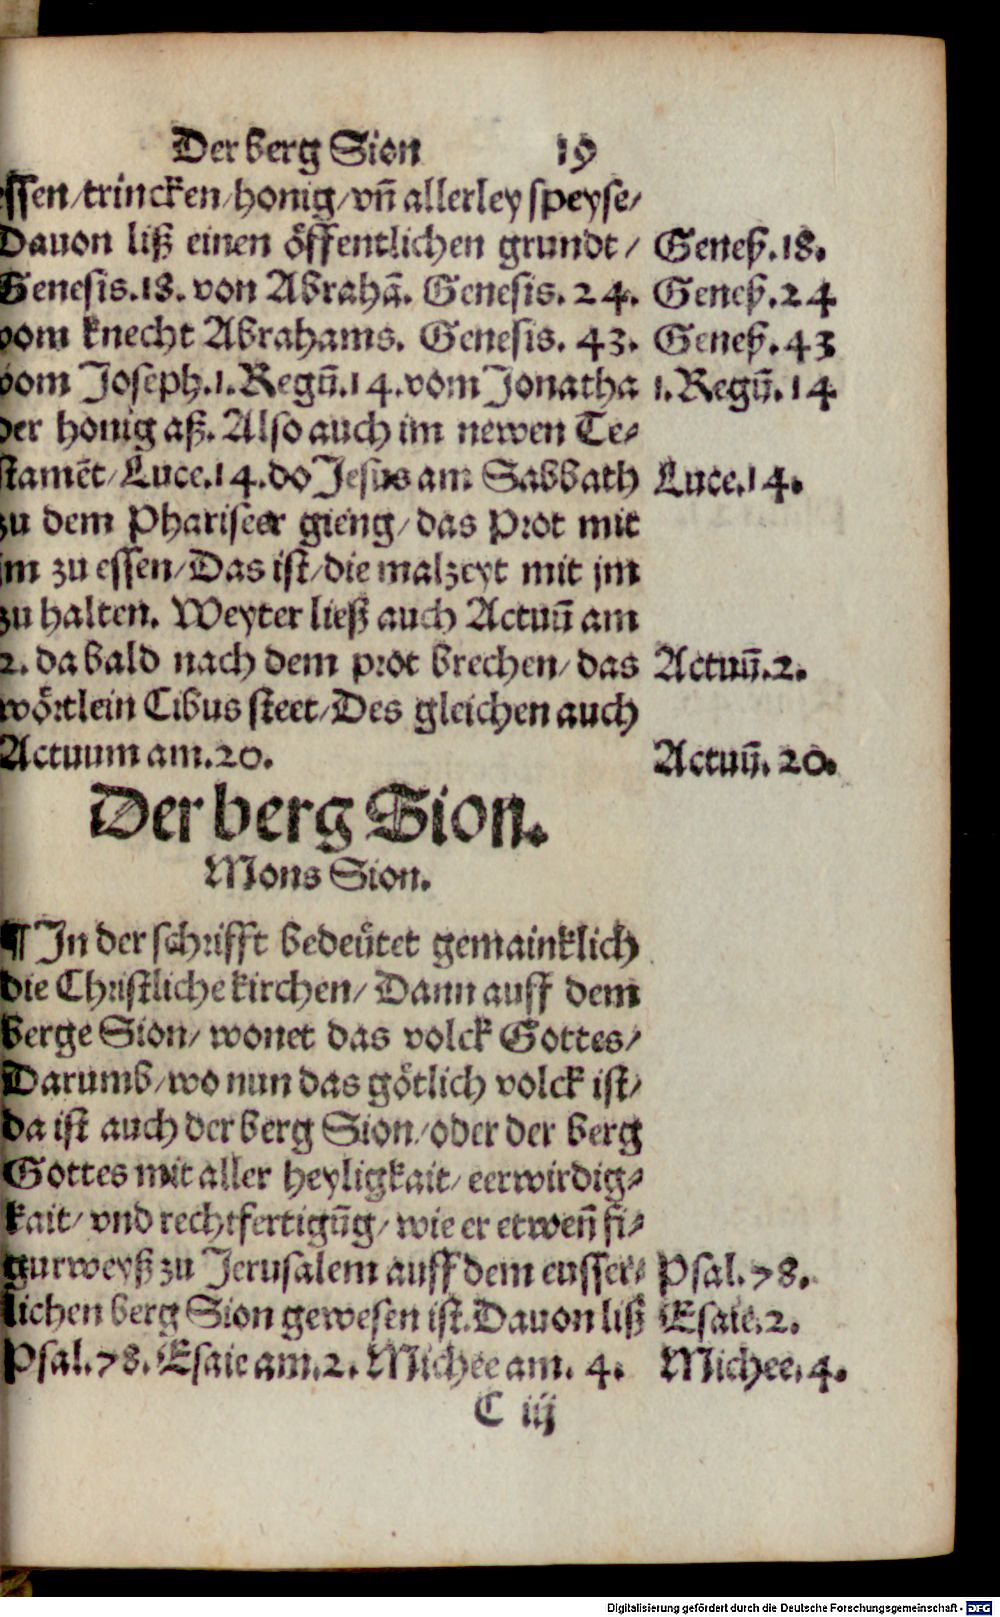 Der berg Sion 19
essen/trincken/honig/vn̄ allerley speyse/
Dauon liß einen öffentlichen grundt/ Geneß.18.
Genesis.18. von Abrahā. Genesis. 24. Geneß.24
vom knecht Abrahams. Genesis. 43. Geneß.43
vom Joseph.1.Regū.14.vom Jonatha 1.Regū.14
der honig aß. Also auch im newen Te⸗
stamēt/Luce.14.do Jesus am Sabbath Luce.14.
zu dem Phariseer gieng/das Prot mit
jm zu essen/Das ist/die malzeyt mit jm
zu halten. Weyter ließ auch Actuū am
2. da bald nach dem prot brechen/das Actuū.2.
wörtlein Cibus steet/Des gleichen auch
Actuum am.20. Actuū.20.
Der berg Sion.
Mons Sion.
¶ In der schrifft bedeütet gemainklich
die Christliche kirchen/Dann auff dem
berge Sion/wonet das volck Gottes/
Darumb/wo nun das götlich volck ist/
da ist auch der berg Sion/oder der berg
Gottes mit aller heyligkait/eerwirdig⸗
kait/vnd rechtfertigūg/wie er etwen̄ fi⸗
gurweyß zu Jerusalem auff dem eusser⸗ Psal.78.
lichen berg Sion gewesen ist.Dauon liß Esaie.2.
Psal.78.Esaie am.2.Michee am. 4. Michee.4.
C iij
Digitalisierung gefördert durch die Deutsche Forschungsgemeinschaft - DFG